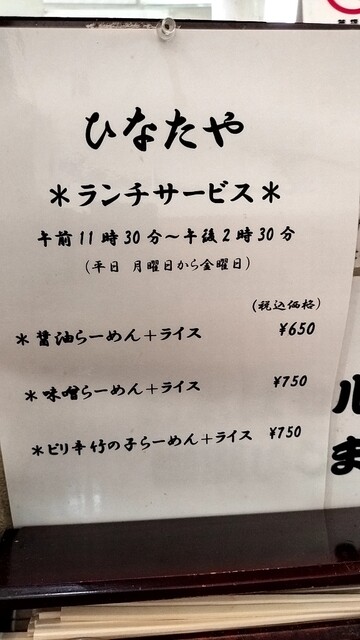 ひなたや
＊ランチサービス＊
午前11時30分～午後2時30分
(平日 月曜日から金曜日)
(税込価格)
＊醤油らーめん＋ライス ¥650
＊味噌らーめん＋ライス ¥750
＊ピリ辛竹の子らーめん＋ライス ¥750
ル
ま